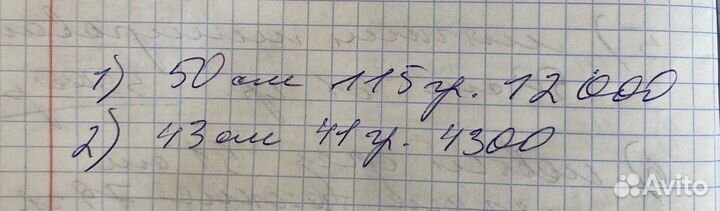 1) 50 см 115 гр. 12 000
2) 43 см 41 гр. 4300
Avito